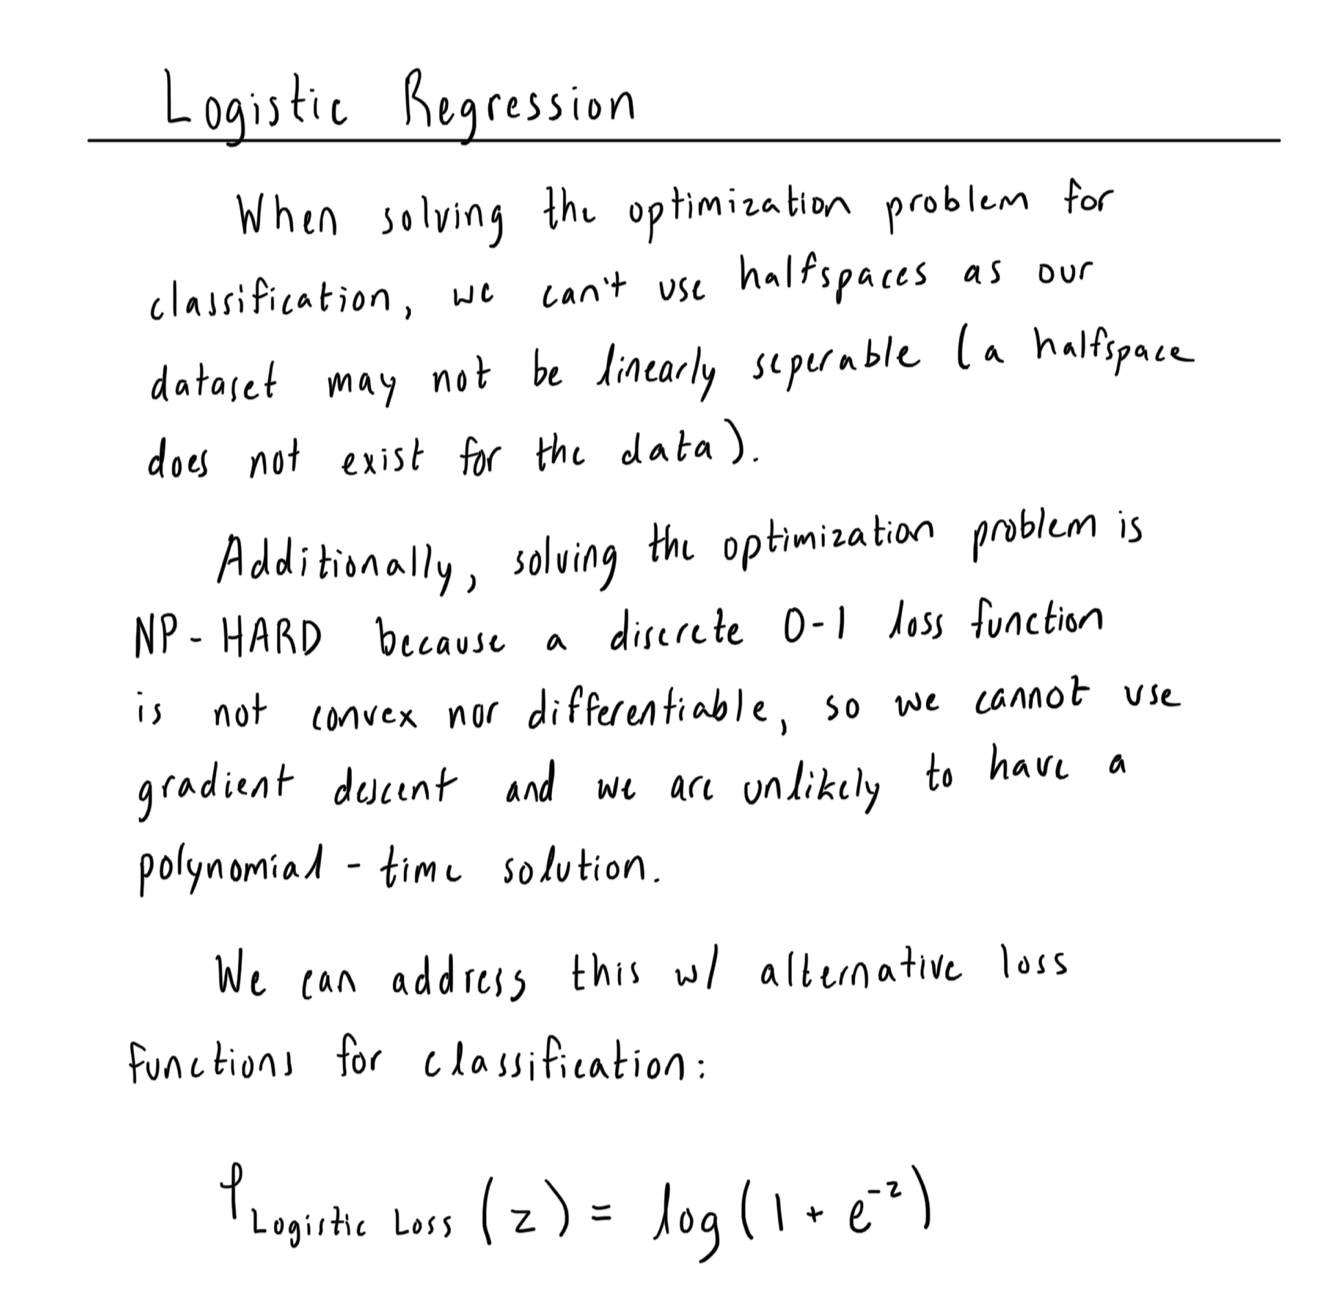 Logistic Regression
When solving the optimization problem for
classification, we can't use halfspaces as our
dataset may not be linearly seperable (a halfspace
does not exist for the data).
Additionally, solving the optimization problem is
NP-HARD because a discrete 0-1 loss function
is not convex nor differentiable, so we cannot use
gradient descent and we are unlikely to have a
polynomial-time solution.
We can address this w/ alternative loss
functions for classification:
φ_Logistic Loss (z) = log(1 + e^-z)